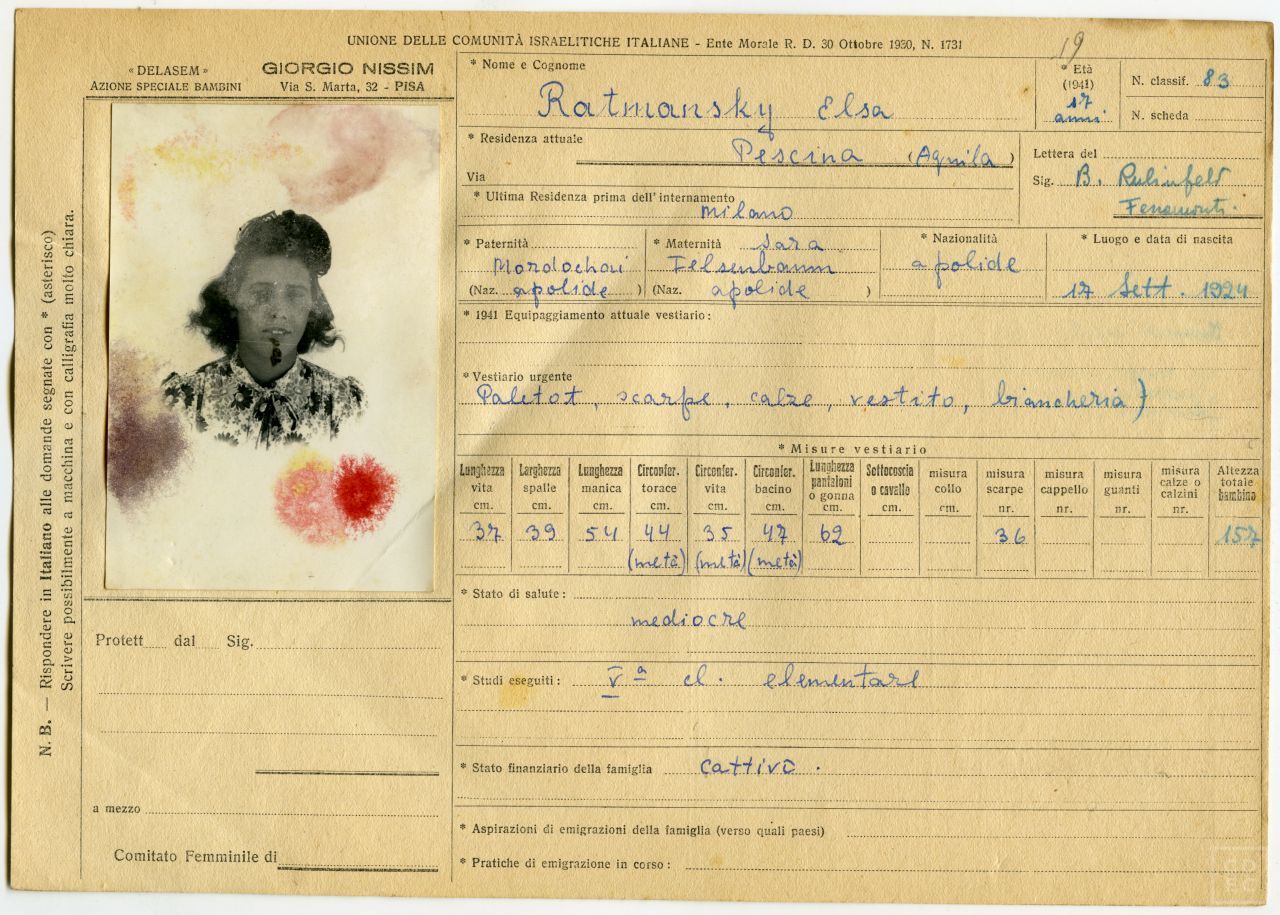 UNIONE DELLE COMUNITÀ ISRAELITICHE ITALIANE - Ente Morale R. D. 30 Ottobre 1930, N. 1731
« DELASEM »
AZIONE SPECIALE BAMBINI
GIORGIO NISSIM
Via S. Marta, 32 - PISA
N. B. — Rispondere in Italiano alle domande segnate con * (asterisco)
Scrivere possibilmente a macchina e con calligrafia molto chiara.
* Nome e Cognome
Ratmansky Elsa
19
* Età
(1941)
17
anni
N. classif. 83
N. scheda
* Residenza attuale
Pescina (Aquila)
Via
* Ultima Residenza prima dell'internamento
Milano
Lettera del
Sig. B. Rubinfeld
* Paternità
Mordochai
(Naz. apolide )
* Maternità Sara
Felsenbaum
(Naz. apolide )
* Nazionalità
apolide
* Luogo e data di nascita
17 Sett. 1924
* 1941 Equipaggiamento attuale vestiario:
* Vestiario urgente
Paletot, scarpe, calze, vestito, biancheria)
* Misure vestiario
Lunghezza vita cm. 37
Larghezza spalle cm. 39
Lunghezza manica cm. 54
Circonfer. torace cm. 44 (metà)
Circonfer. vita cm. 35 (metà)
Circonfer. bacino cm. 47 (metà)
Lunghezza pantaloni o gonna cm. 62
Sottocoscia o cavallo cm.
misura collo cm.
misura scarpe nr. 36
misura cappello nr.
misura guanti nr.
misura calze o calzini nr.
Altezza totale bambino 157
* Stato di salute:
mediocre
* Studi eseguiti: Vª cl. elementare
* Stato finanziario della famiglia cattivo.
* Aspirazioni di emigrazioni della famiglia (verso quali paesi)
* Pratiche di emigrazione in corso:
Protett dal Sig.
a mezzo
Comitato Femminile di
CDEC